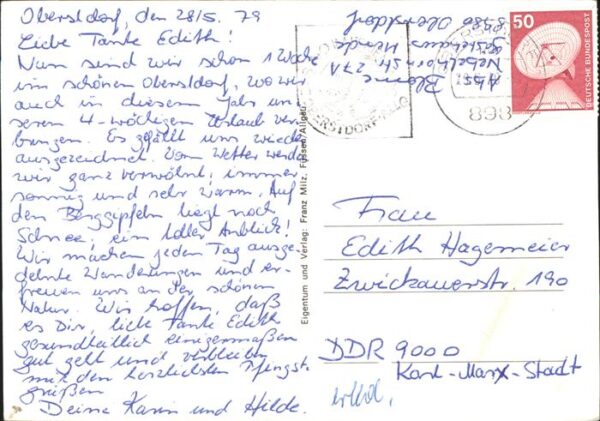 Oberstdorf, den 28/5. 79
Liebe Tante Edith!
Nun sind wir schon 1 Woche
im schönen Oberstdorf, wo wir
auch in diesem Jahr un-
seren 4-wöchigen Urlaub ver-
bringen. Es gefällt uns wieder
ausgezeichnet. Vom Wetter werden
wir ganz verwöhnt, immer
sonnig und sehr warm. Auf
den Berggipfeln liegt noch
Schnee, ein toller Anblick!
Wir machen jeden Tag ausge-
dehnte Wanderungen und er-
freuen uns an der schönen
Natur. Wir hoffen, daß
es Dir, liebe Tante Edith
gesundheitlich einigermaßen
gut geht und verbleiben
mit den herzlichsten Pfingst-
grüßen
Deine Karin und Hilde.
Eigentum und Verlag: Franz Milz, Füssen/Allgäu
Abs.
Nebelhornstr. 27
Oberstdorf
OBERSTDORF
898
50
DEUTSCHE BUNDESPOST
Frau
Edith Hagemeier
Zwickauerstr. 190
DDR 9000
Karl-Marx-Stadt